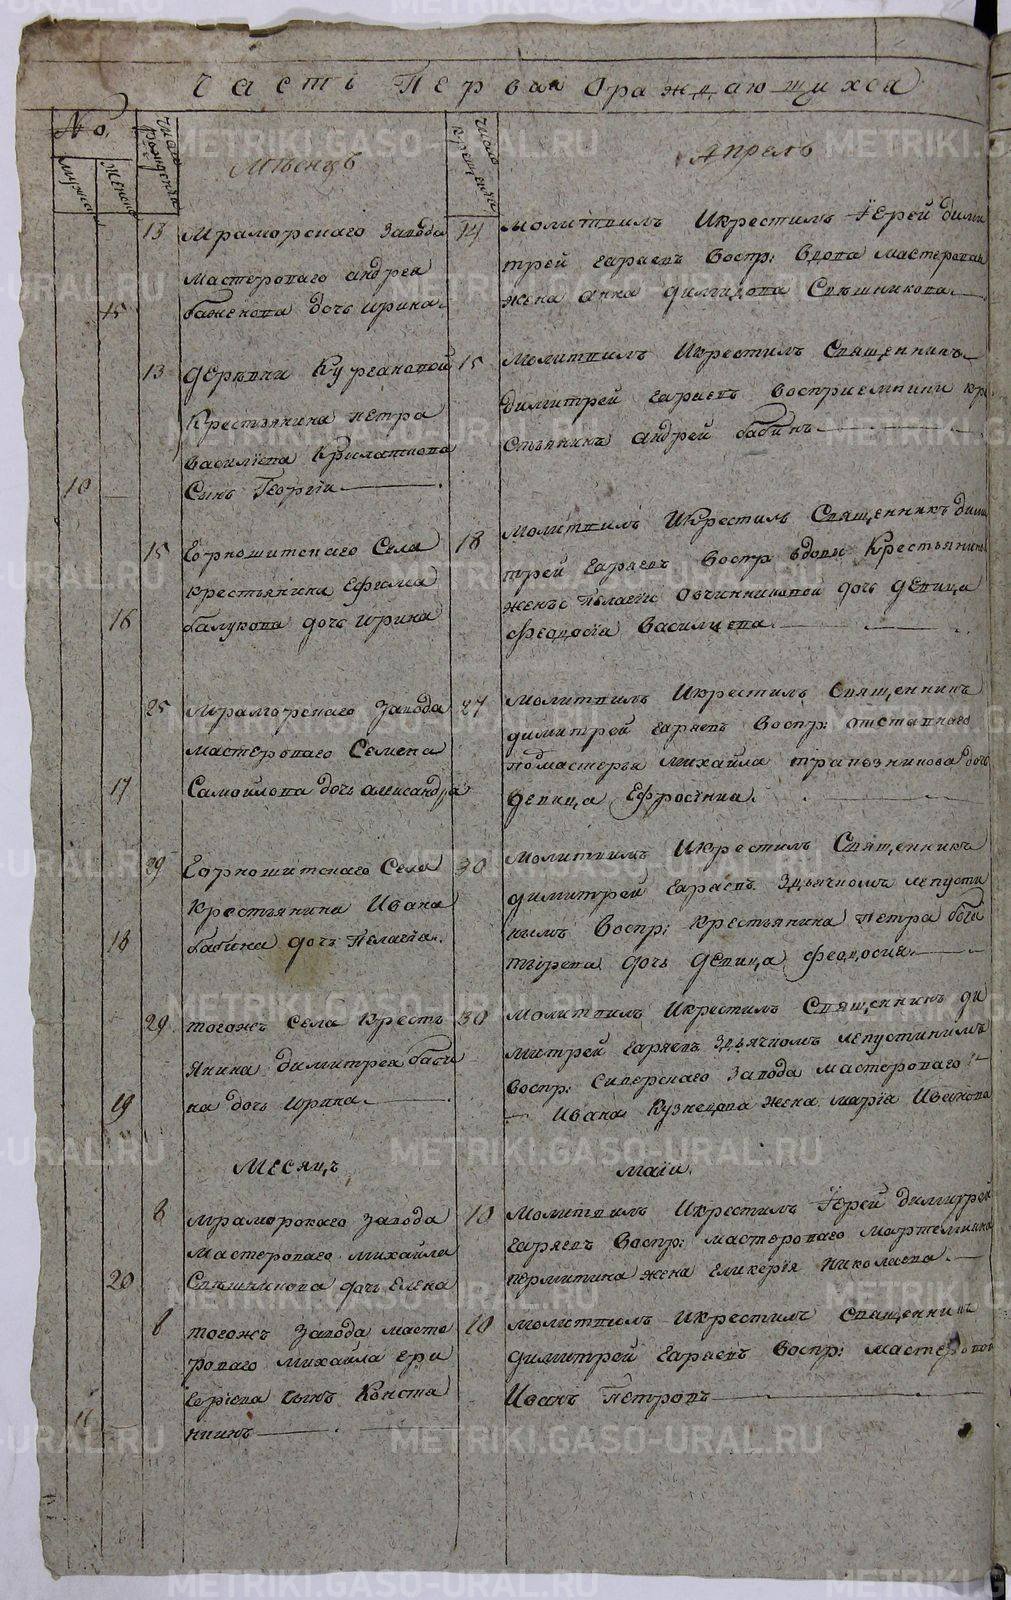 Часть Первая Ораждающихся
No.
мужска
женска
число рождения
Мѣсецъ
число крещения
Апрель
13 Мраморскаго завода
мастероваго андрея
15 баженова дочь ирина.
14 молитвилъ Икрестилъ Їерей дими
трей гаряевъ Воспр: вдова мастероваго
жена анна димидова Свѣшникова
13 деревни Кургановой
Крестьянина петра
василїева Крылаткова
10 Сынъ Георгїи
15 молитвилъ Икрестилъ Священникъ
димитрей гаряевъ восприемники кре
стьянинъ андрей бабинъ
15 Горношитскаго Села
крестьянина Ефима
16 балукова дочь ирина
18 молитвилъ Икрестилъ Священникъ дими
трей гаряевъ воспр вдовы Крестьянина
женѣ Пелагїи Овчинниковой дочь девица
феодосїа Василиева
25 Мраморскаго завода
мастероваго Семена
17 Самойлова дочь александра
27 молитвилъ Икрестилъ Священникъ
димитрей гаряевъ Воспр: отставнаго
подмастерья михайла трапѣзникова дочь
девица Ефросїниа.
29 Горношитскаго Села
Крестьянина Ивана
18 бабина дочь Пелагїа.
30 молитвилъ Икрестилъ Священникъ
димитрей гаряевъ здьячномъ лепусти
нымъ Воспр: Крестьянина петра боча
тырева дочь девица феодосия
29 тогожъ села Кресть
янина димитрея баби
19 на дочь ирина
30 молитвилъ Икрестилъ Священникъ ди
митрей гаряевъ здьячномъ лепустинымъ
воспр: Сиверскаго завода мастероваго
Ивана Кузнецова жена марїа Иванова
Месяцъ маїи
8 мраморскаго завода
мастероваго михайла
20 Свѣшникова дочь елена
10 молитвилъ Икрестилъ Їерей димитрей
гаряевъ Воспр: мастероваго мартемьяна
пермитина жена гликерїя николаева.
8 тогожъ завода масте
роваго михайла гри
горїева сынъ Конста
11 нтинъ
10 молитвилъ Икрестилъ священникъ
димитрей гаряевъ воспр: мастеровой
Иванъ Петровъ
METRIKI.GASO-URAL.RU